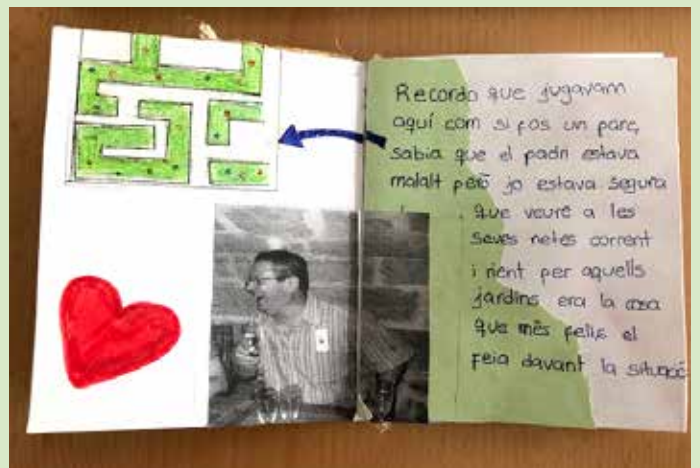 Recordo que jugavam
aquí com si fos un parc,
sabia que el padrí estava
malalt però jo estava segura
que veure a les
seves netes corrent
i rient per aquells
jardins era la cosa
que més feliç el
feia davant la situació